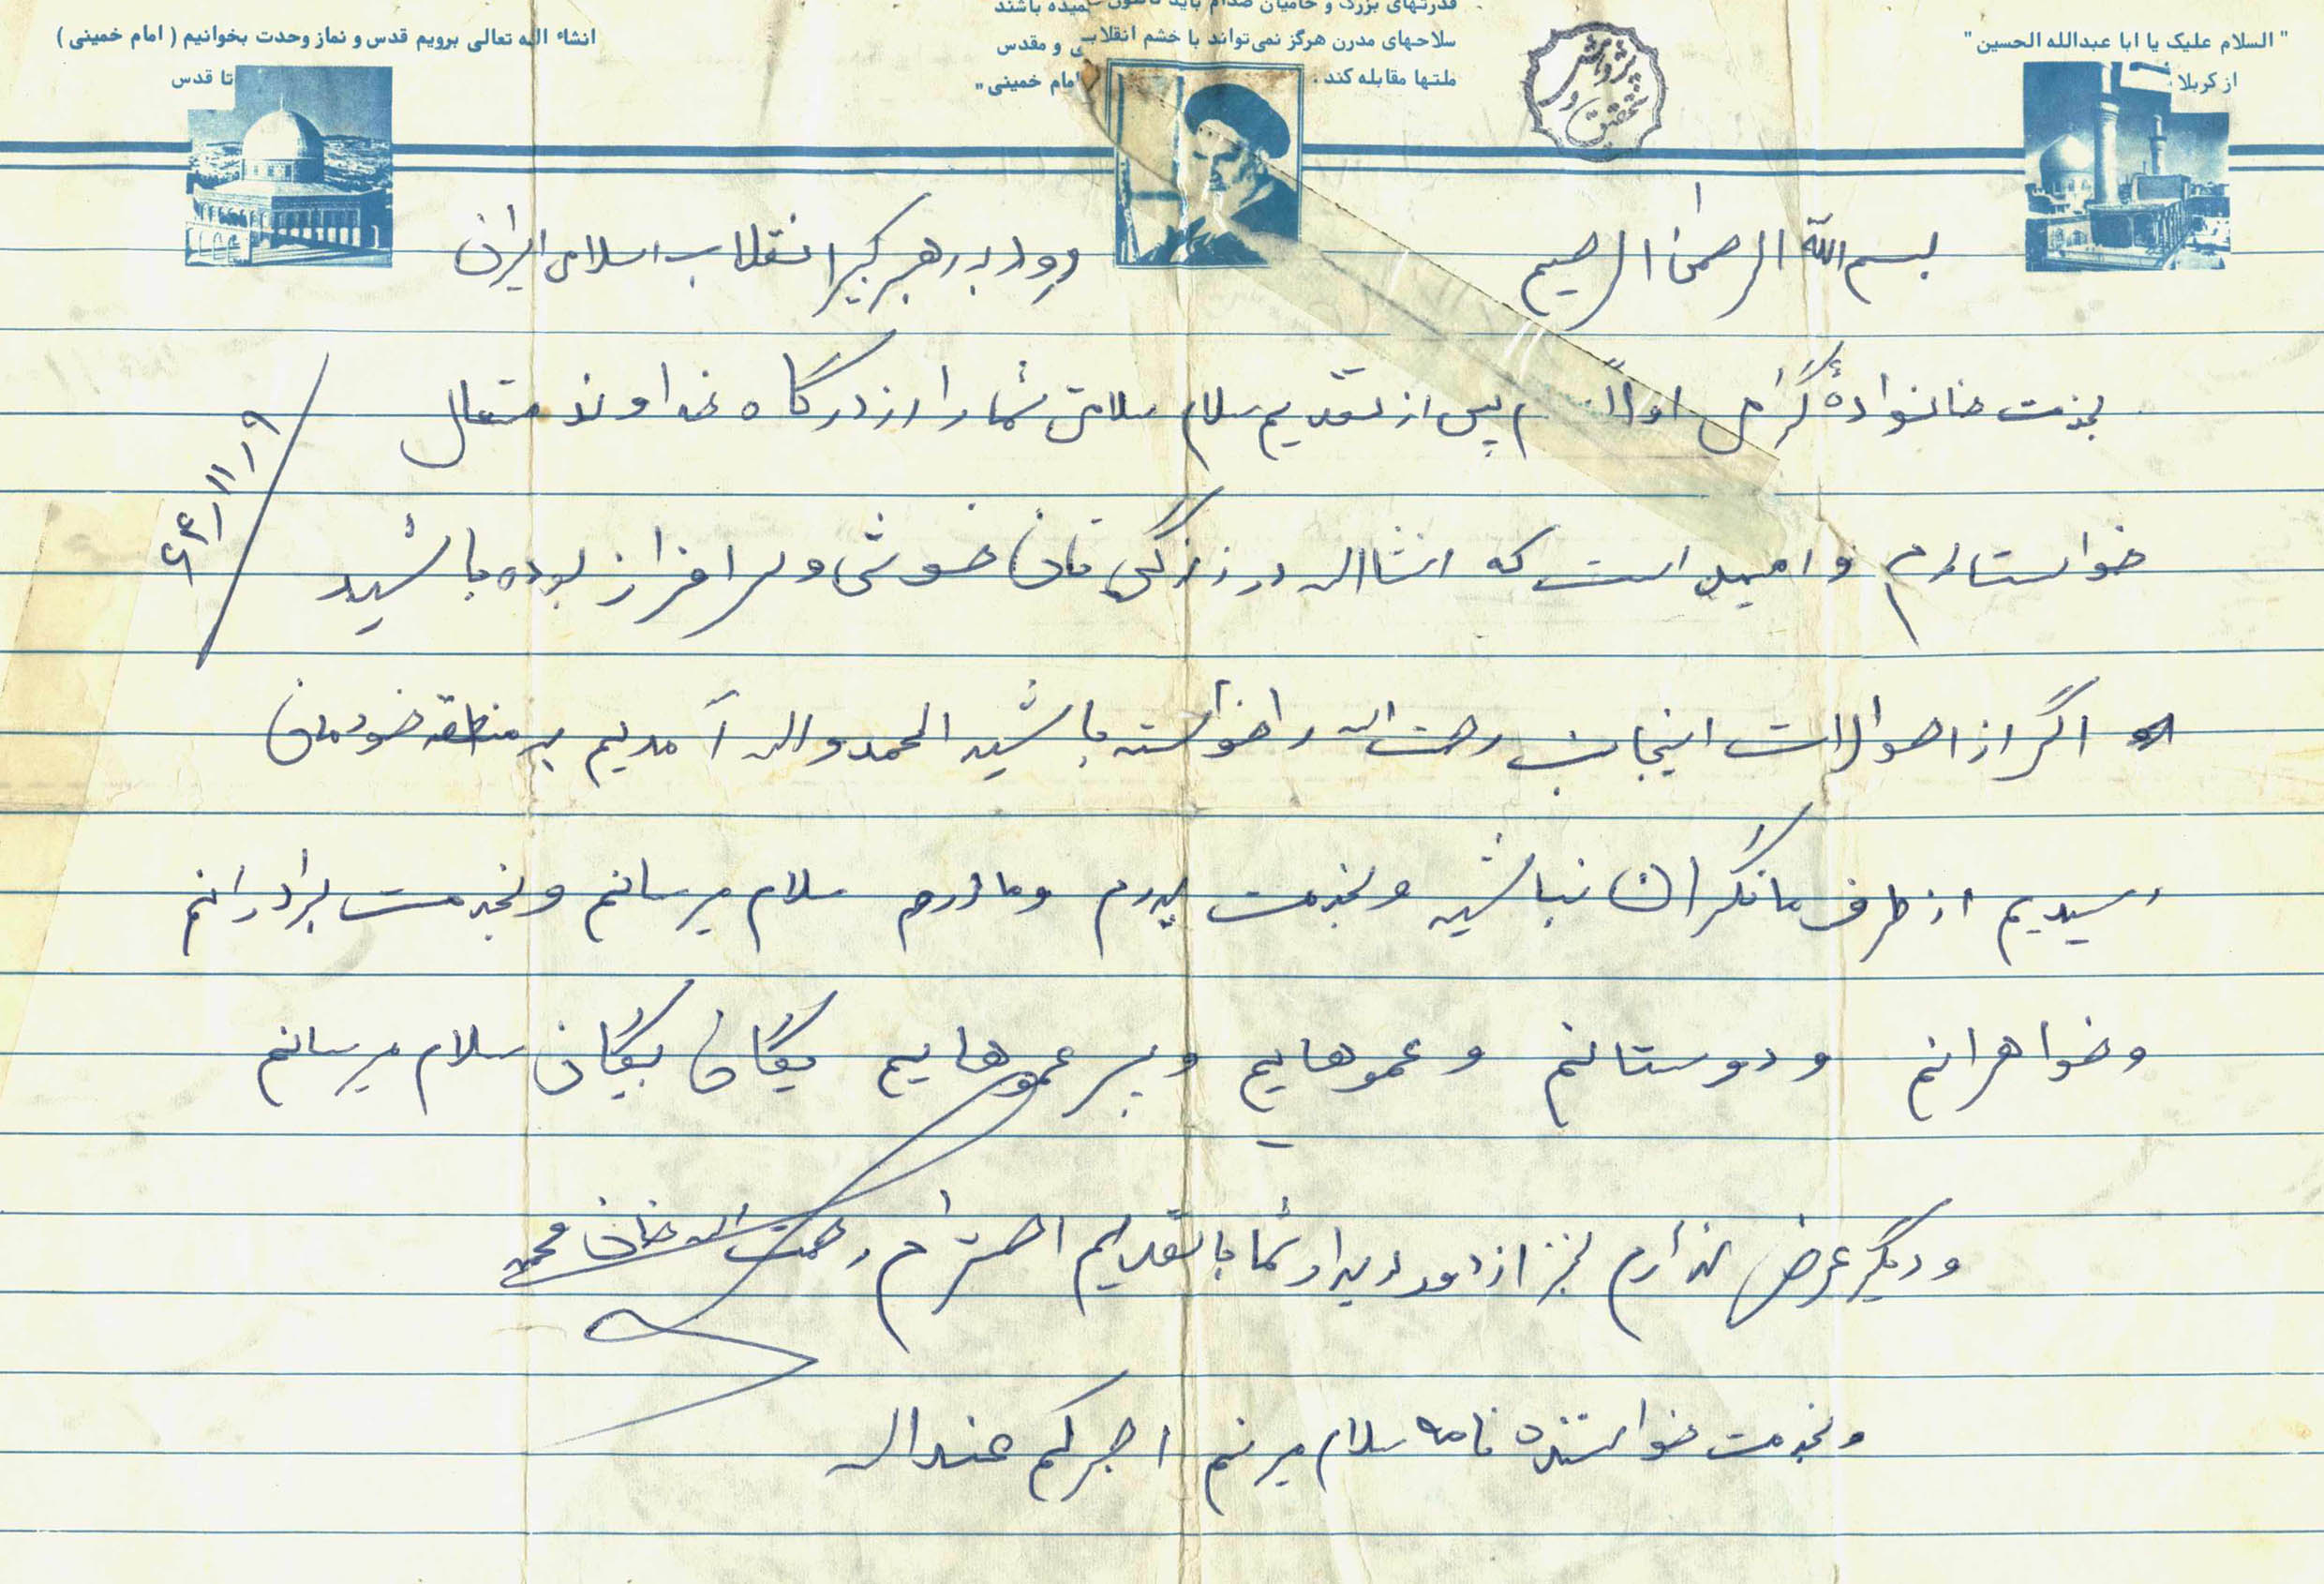 "السلام علیک یا ابا عبدالله الحسین"
از کربلا
قدرتهای بزرگ و حامیان صدام باید فهمیده باشند
سلاحهای مدرن هرگز نمی‌تواند با خشم انقلاب و مقدس
ملتها مقابله کند. امام خمینی"
انشاء الله تعالی برویم قدس و نماز وحدت بخوانیم (امام خمینی)
تا قدس
تحقیق و پژوهش
بسم الله الرحمن الرحیم
درود بر رهبر کبیر انقلاب اسلامی ایران
بخدمت خانواده گرامی اولاً پس از تقدیم سلام سلامتی شما را از درگاه خداوند متعال
۹/۱۱/۶۳
خواستارم و امید است که انشااله در زندگی تان خوش و سرافراز بوده باشید
اگر از احوالات اینجانب رحمت اله را خواسته باشید الحمدواله آمدیم به منطقه خودمان
رسیدیم از طرف ما نگران نباشید و بخدمت پدرم و مادرم سلام میرسانم و بخدمت برادرانم
و خواهرانم و دوستانم و عموهایم و پسر عموهایم یگان یگان سلام میرسانم
و دیگر عرض ندارم بجز از دور دیدار شما با تقدیم احترام رحمت اله خان محمد
و بخدمت خواننده نامه سلام میرنم اجرکم عنداله